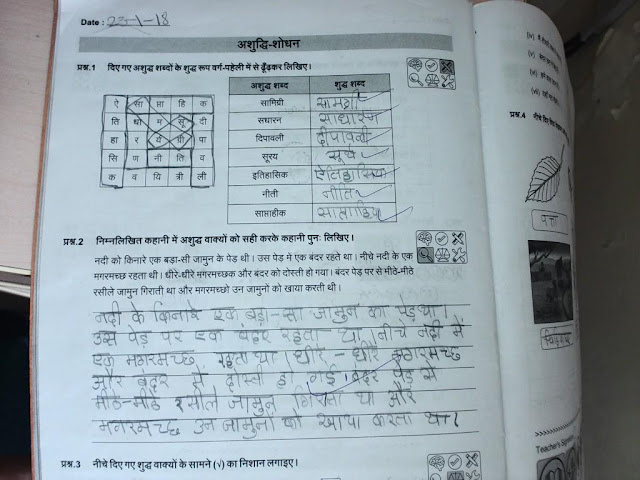 Date : 23-1-18
अशुद्धि-शोधन
प्रश्न.1 दिए गए अशुद्ध शब्दों के शुद्ध रूप वर्ग-पहेली में से ढूँढ़कर लिखिए।
ऐ सा प्ता हि क
ति धा म सू दी
हा र ग्री पा
सि ण नी ति व
क व यि त्री ली
अशुद्ध शब्द शुद्ध शब्द
सामिग्री सामग्री
सधारन साधारण
दिपावली दीपावली
सूरय सूर्य
इतिहासिक ऐतिहासिक
नीती नीति
साप्ताहीक साप्ताहिक
प्रश्न.2 निम्नलिखित कहानी में अशुद्ध वाक्यों को सही करके कहानी पुनः लिखिए।
नदी को किनारे एक बड़ा-सी जामुन के पेड़ थी। उस पेड़ में एक बंदर रहते था। नीचे नदी के एक
मगरमच्छ रहता थी। धीरे-धीरे मगरमच्छक और बंदर को दोस्ती हो गया। बंदर पेड़ पर से मीठे-मीठे
रसीले जामुन गिराती था और मगरमच्छ उन जामुनों को खाया करती था।
नदी के किनारे एक बड़ा-सा जामुन का पेड़ था।
उस पेड़ पर एक बंदर रहता था। नीचे नदी में
एक मगरमच्छ रहता था। धीरे-धीरे मगरमच्छ
और बंदर में दोस्ती हो गई। बंदर पेड़ से
मीठे-मीठे रसीले जामुन गिराता था और
मगरमच्छ उन जामुनों को खाया करता था।
प्रश्न.3 नीचे दिए गए शुद्ध वाक्यों के सामने (√) का निशान लगाइए।
प्रश्न.4 नीचे दिए गए
पत्ता
Teacher's